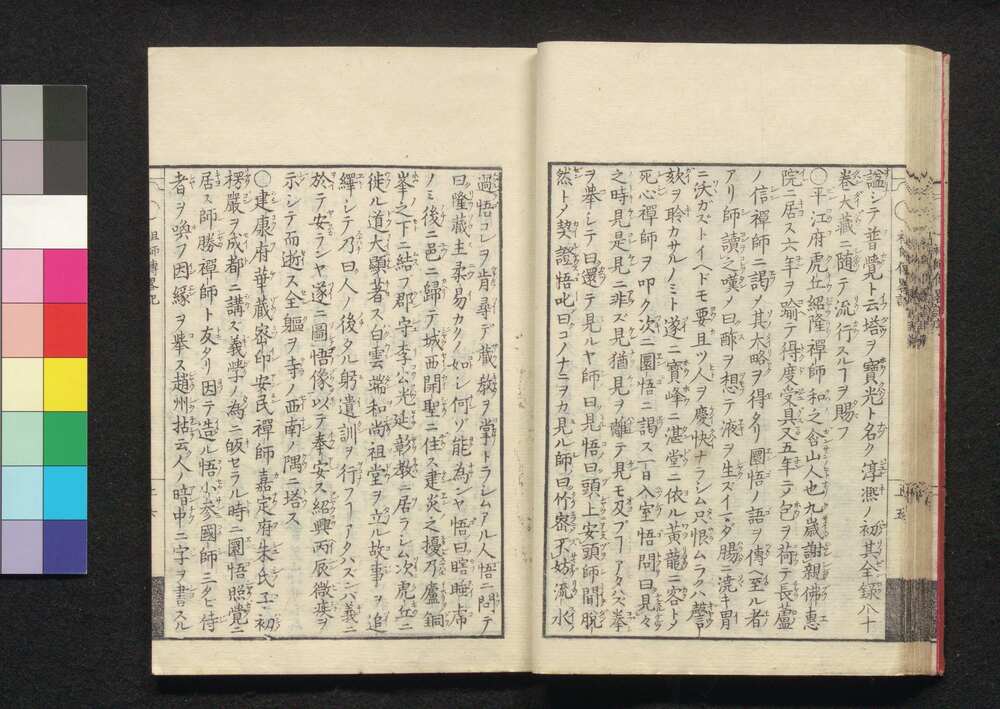 諡シテ普覺ト云塔ヲ寶光ト名ク淳凞ノ初其全錄八十
卷大藏ニ随テ流行スルヿヲ賜フ
〇平江府虎丘紹隆禪師和之含山人也九歳謝親佛惠
院ニ居ス六年ヲ踰テ得度受具又五年ニテ包ヲ荷テ長蘆
ノ信禪師ニ謁メ其大略ヲ得タリ圜悟ノ語ヲ傳ヘ至ル者
アリ師讀之嘆メ曰酢ヲ想テ液ヲ生ズイマダ腸ニ澆キ胃
ニ沃ガズトイヘドモ要且ツ人ヲ慶快ナラシム只恨ムラクハ謦
欬ヲ聆カサルノミト遂ニ寶峰ニ湛堂ニ依ル黄龍ニ客トノ
死心禪師ヲ叩ク次ニ圜悟ニ謁ス一日入室悟問曰見々
之時見是見ニ非ズ見猶見ヲ離テ見モ及ブヿアタハズ拳
ヲ擧シテ曰還テ見ルヤ師曰見悟曰頭上安頭師聞脱
然トノ契證悟叱曰コノナニヲカ見ル師曰竹密不妨流水
過悟コレヲ肯尋デ藏教ヲ掌トラシムアル人悟ニ問テ
曰隆藏主柔易カクノ如シ何ゾ能為シヤ悟曰瞌睡虎
ノミ後ニ邑ニ歸テ城西開聖ニ住ス建炎之擾乃廬銅
峯之下ニ結フ郡守李公光延彰教ニ居ラシム次虎丘ニ
徙ル道大顯著ス白雲端和尚祖堂ヲ立ル故事ヲ追
繹シテ乃曰人ノ後タル躬遺訓ヲ行フヿアタハズンハ義ニ
於テ安ランヤ遂ニ圖悟像以テ奉安ス紹興丙辰微恙ヲ
示シテ而逝ス全軀ヲ寺ノ西南ノ隅ニ塔ス
〇建康府華藏密印安民禪師嘉定府朱氏ノ子初
楞嚴ヲ成都ニ講ス義學ノ為ニ皈セラル時ニ圜悟照覺ニ
居ス師勝禪師ト友タリ因テ造ル悟小參國師三タヒ侍
者ヲ喚フ因縁ヲ擧ス趙州拈云人ノ暗中ニ字ヲ書スル
祖師傳畧九